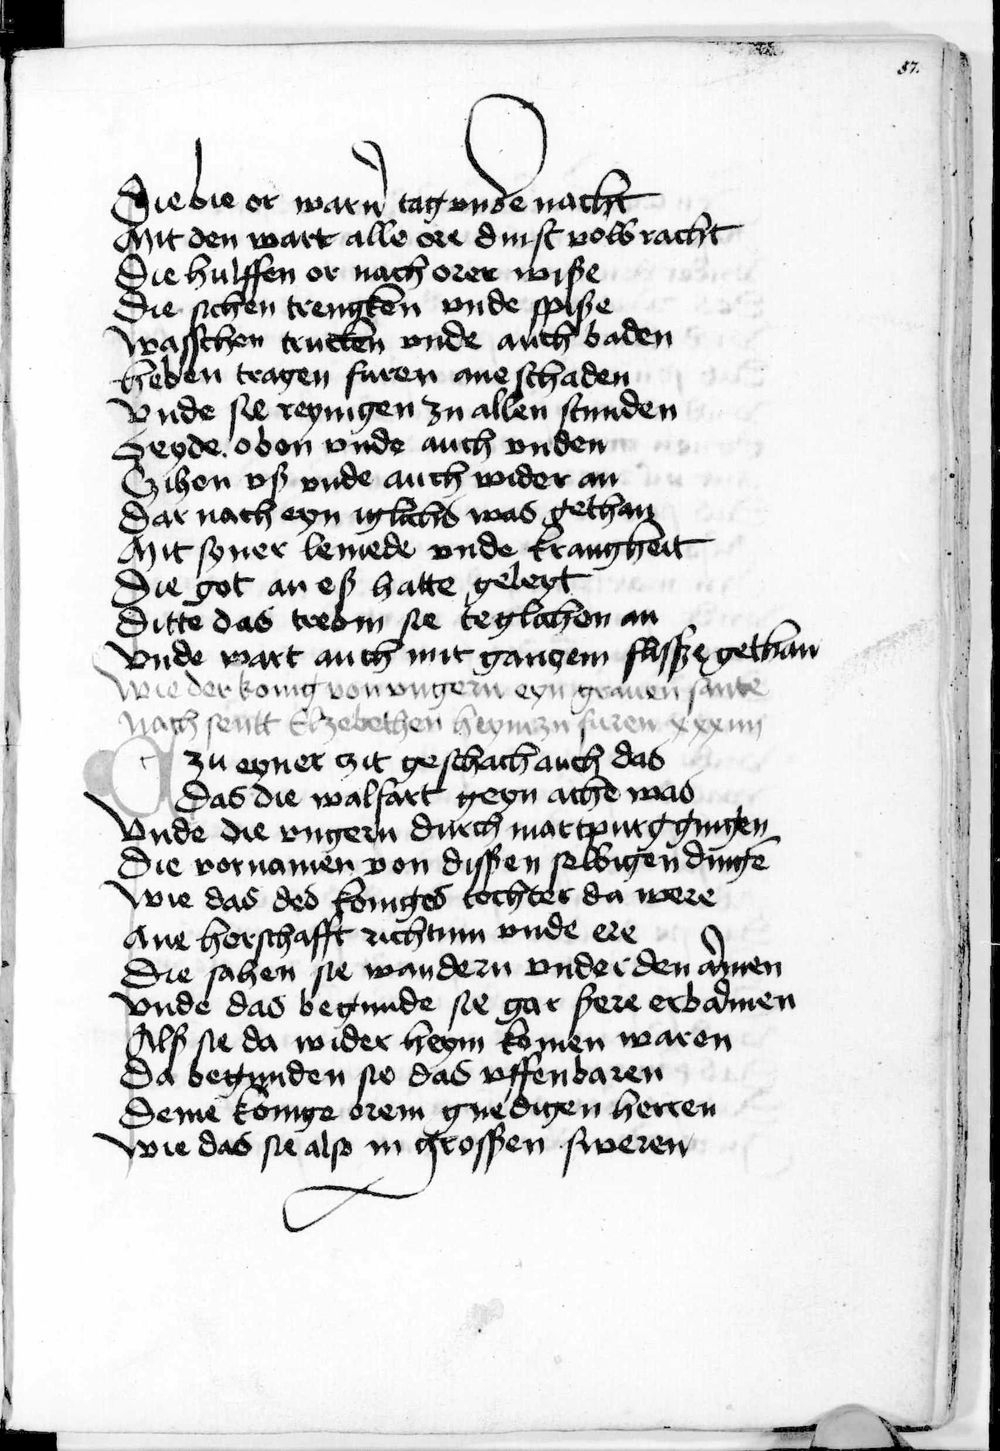 87.
Die bie or warn tag vnde nacht
Mit den wart alle ore dinst volbracht
Die hulffen or nach orer wiße
Die sichen trengken vnde spiße
Wasschen trucken vnde auch baden
Heben tragen furen ane schaden
Vnde sie reynigen zu allen stunden
Beyde oben vnde auch vnden
Czihen vß vnde auch wider an
Dar nach eyn iglichs was gethan
Mit syner lemede vnde krangheit
Die got an eß hatte geleyt
Ditte das treben sie teglichen an
Vnde wart auch mit ganczem fliße gethan
Wie der konig von vngern eyn graven sante
Nach sentt Elzebethen heym zu furen xxxiiii
Zu eyner zit geschach auch das
Das die walfart geyn ache was
Vnde die vngern durch martpurg gingen
Die vornamen von dissen selbigen dinge
Wie das des koniges tochter da were
Ane herschafft richtum vnde ere
Die sahen sie wandern vnder den armen
Vnde das begunde sie gar sere erbarmen
Alß sie da wider heym komen waren
Da begunden sie das vffenbaren
Deme konige orem gnedigen herren
Wie das sie also in großen sweren